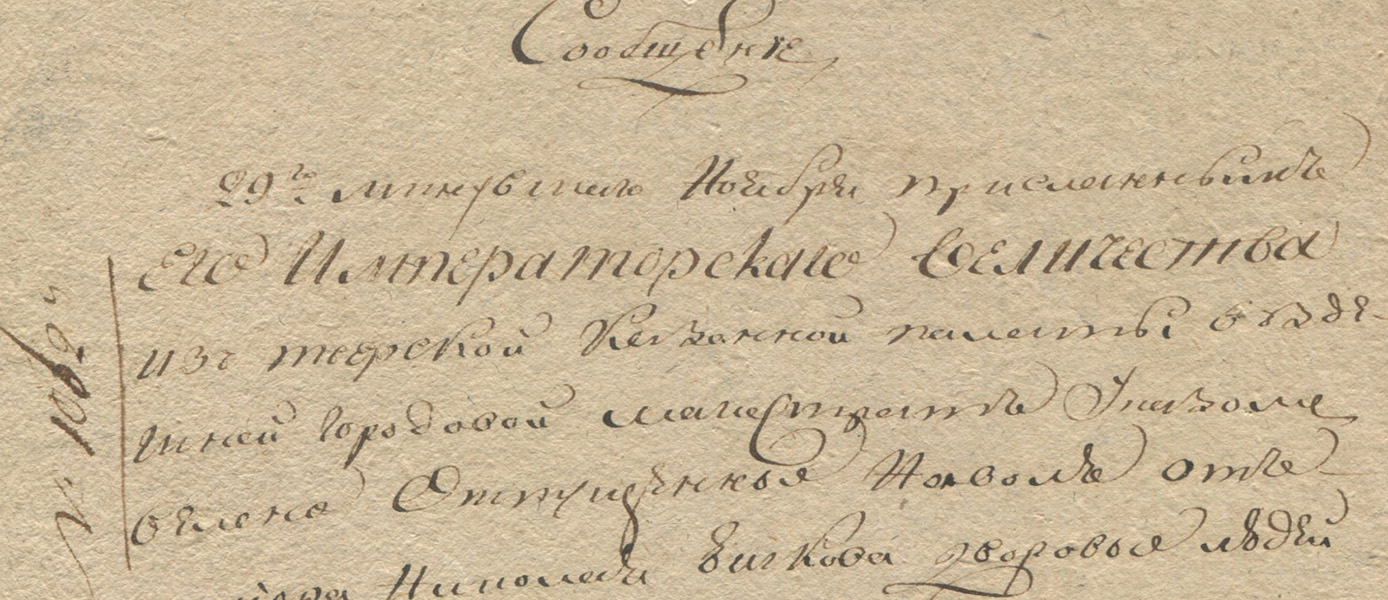 Сообщение
29го минувшаго Ноября присланнымъ
Его Императорскаго Величества
изъ тверской Казенной палаты въ зде-
шней городовой магистратъ Указомъ
велено Отпущенныя На волю отъ
Николая Бычкова дворовыя люди